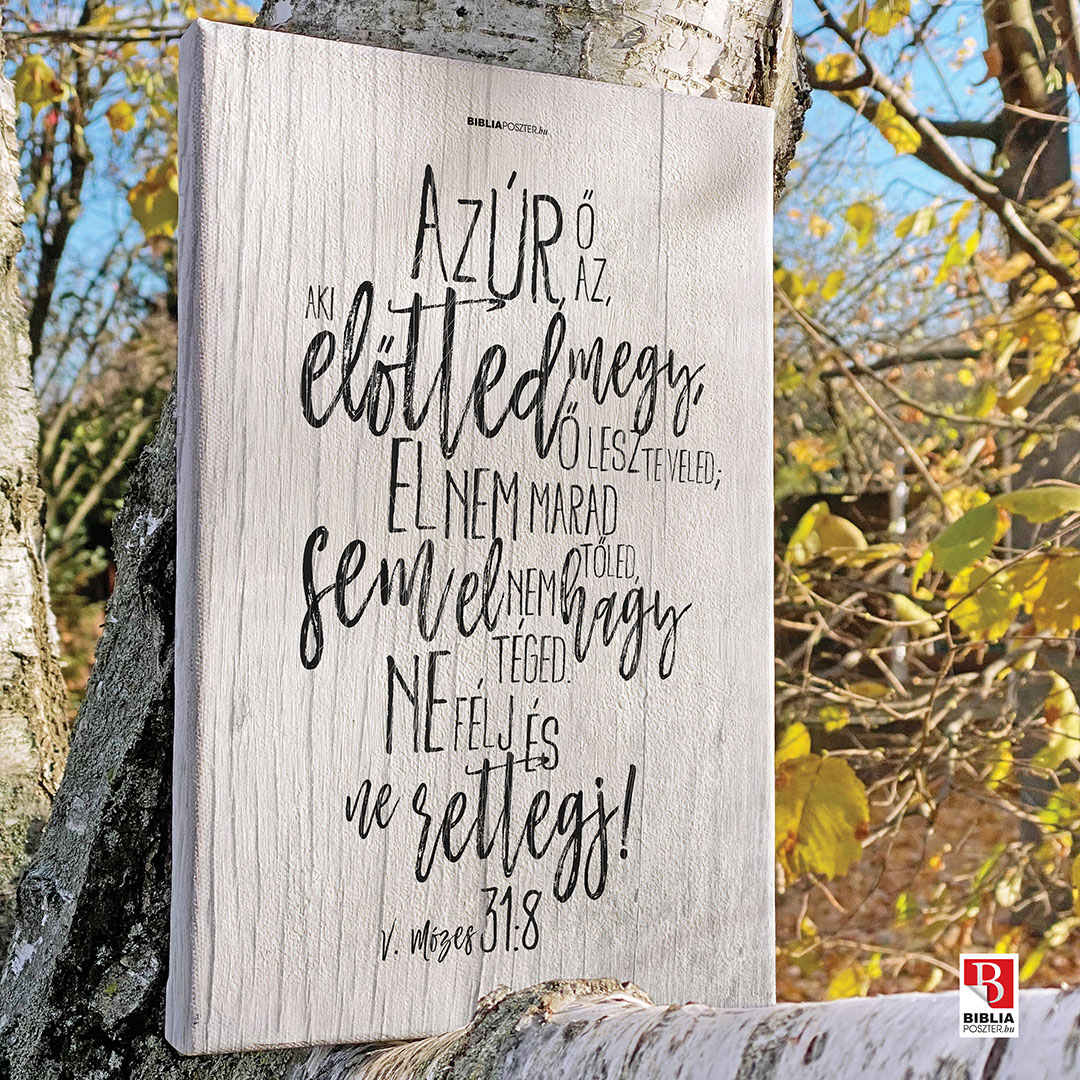 BIBLIAPOSZTER.hu
AZ ÚR, Ő AZ,
AKI előtted megy,
Ő LESZ TEVELED;
EL NEM MARAD TŐLED,
sem el NEM hagy TÉGED.
NE FÉLJ ÉS
ne rettegj!
V. Mózes 31:8
B
BIBLIA
POSZTER.hu